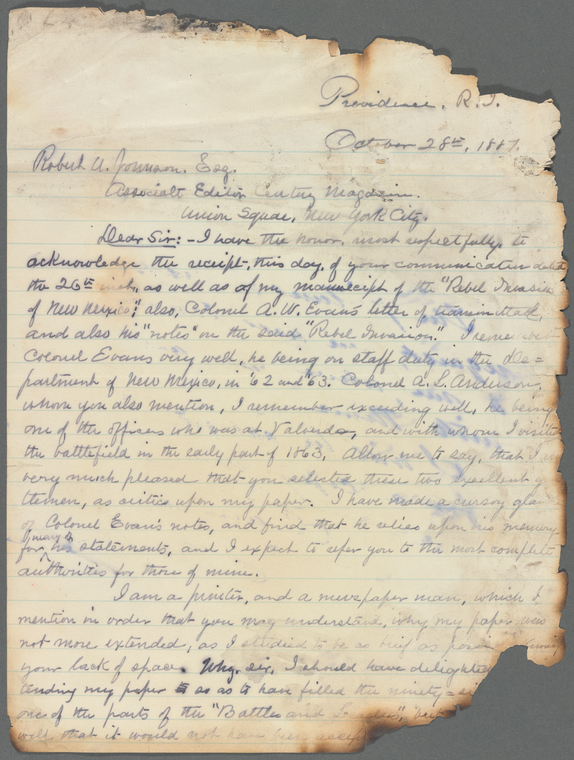 Providence, R.I.
October 28th, 1887.
Robert U. Johnson, Esq.
Associate Editor Century Magazine.
Union Square, New York City.
Dear Sir:- I have the honor, most respectfully, to
acknowledge the receipt, this day, of your communication dated
the 26th inst, as well as of my manuscript of the "Rebel Invasion
of New Mexico", also, Colonel A. W. Evans letter of transmittal,
and also his "notes" on the said "Rebel Invasion". I remember
Colonel Evans very well, he being on staff duty in the de=
partment of New Mexico, in '62 and '63. Colonel A. L. Anderson,
whom you also mention, I remember exceeding well, he being
one of the officers who was at Valverde, and with whom I visited
the battlefield in the early part of 1863. Allow me to say, that I am
very much pleased that you selected these two excellent gen
tlemen, as critics upon my paper. I have made a cursory glance
of Colonel Evans notes, and find that he relies upon his memory
for many of his statements, and I expect to refer you to the most complete
authorities for those of mine.
I am a printer, and a newspaper man, which I
mention in order that you may understand, why my paper was
not more extended, as I studied to be as brief as possi
your lack of space. Why, sir, I should have delighted
tending my paper so as to have filled the ninety=
one of the parts of the "Battles and Leaders", but
well that it would not have been accep